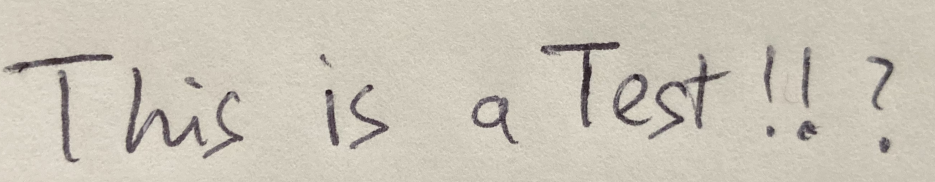 This is a Test!!?